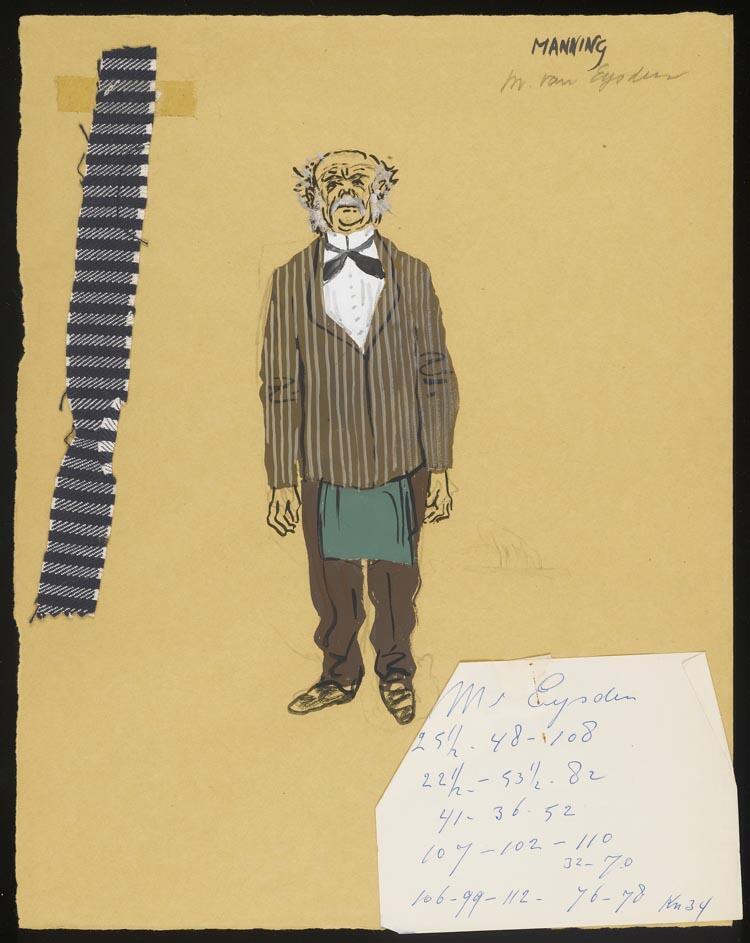 MANNING
M. van Eysden
Mr Eysden
25 1/2 - 48 - 108
22 1/2 - 53 1/2 - 82
41 - 36 - 52
107 - 102 - 110
32 - 70
106 - 99 - 112 - 76 - 78 Kn 34